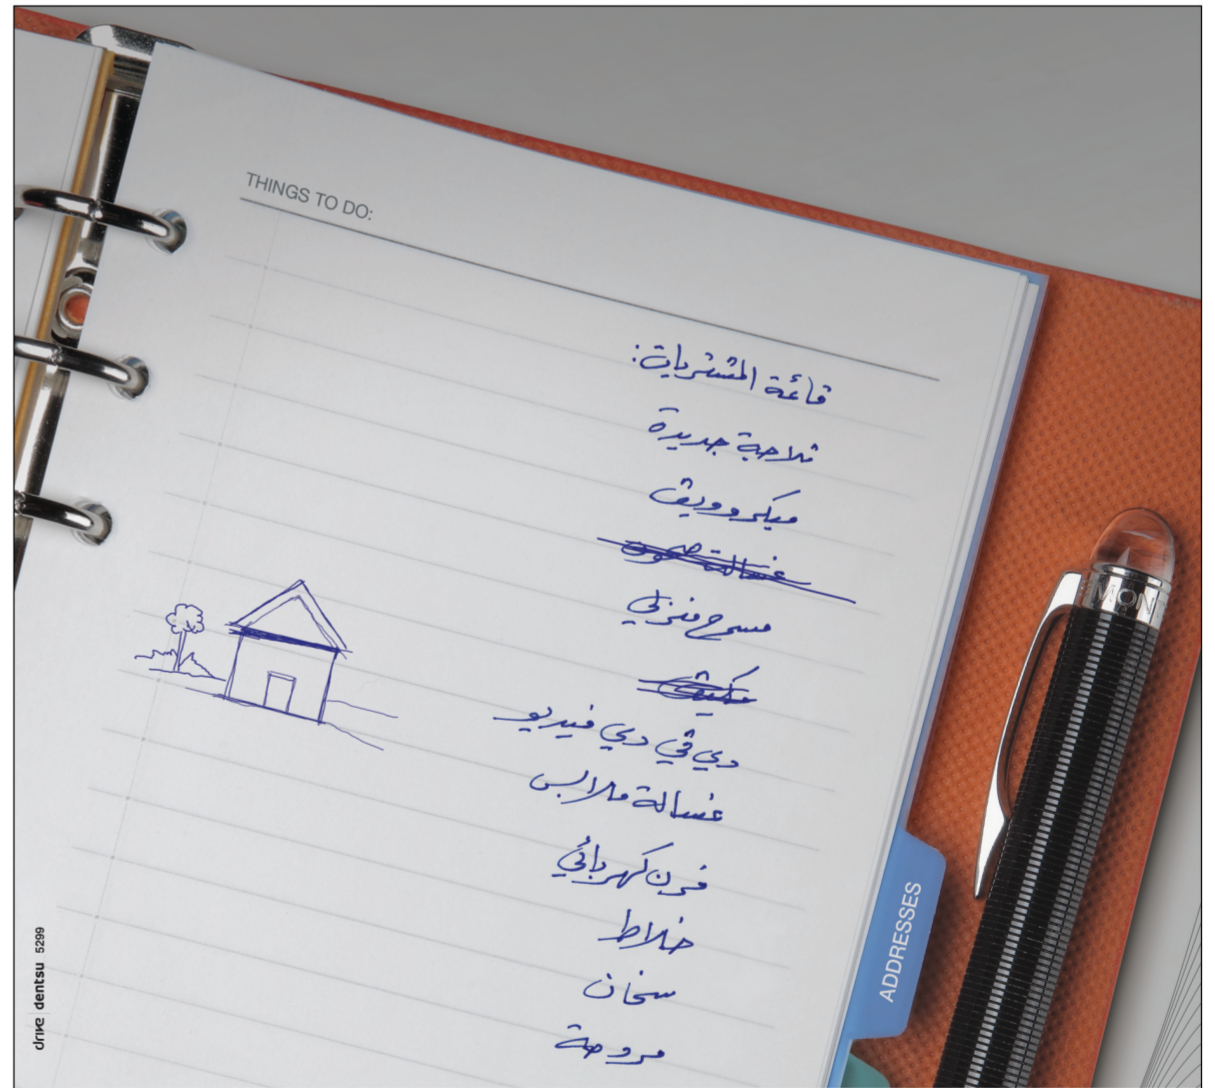 THINGS TO DO:
قائمة المشتريات:
ثلاجة جديدة
ميكروويف
غسالة صحون
مسرح منزلي
مكيف
دي في دي فيديو
غسالة ملابس
فرن كهربائي
خلاط
سخان
مروحة
ADDRESSES
MON
drive dentsu 5299